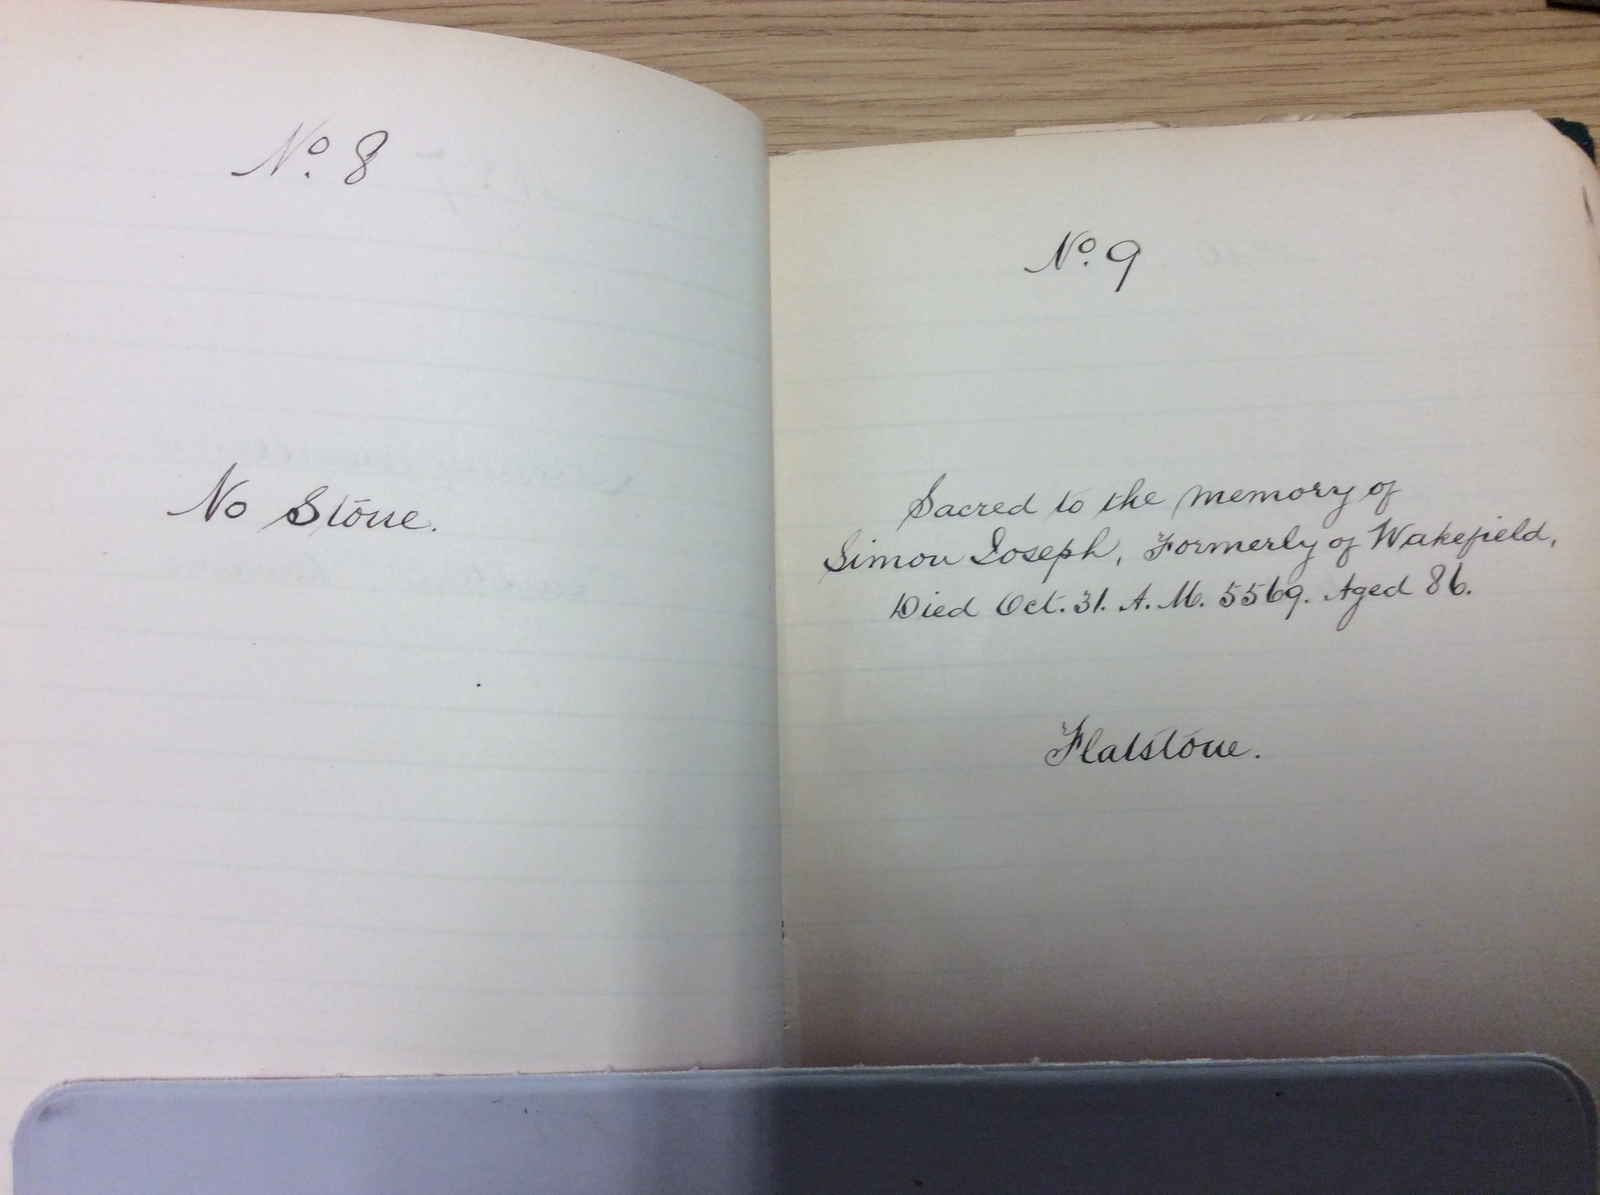 No. 8
No Stone.
No. 9
Sacred to the memory of
Simon Joseph, Formerly of Wakefield,
Died Oct. 31. A. M. 5569. Aged 86.
Flatstone.